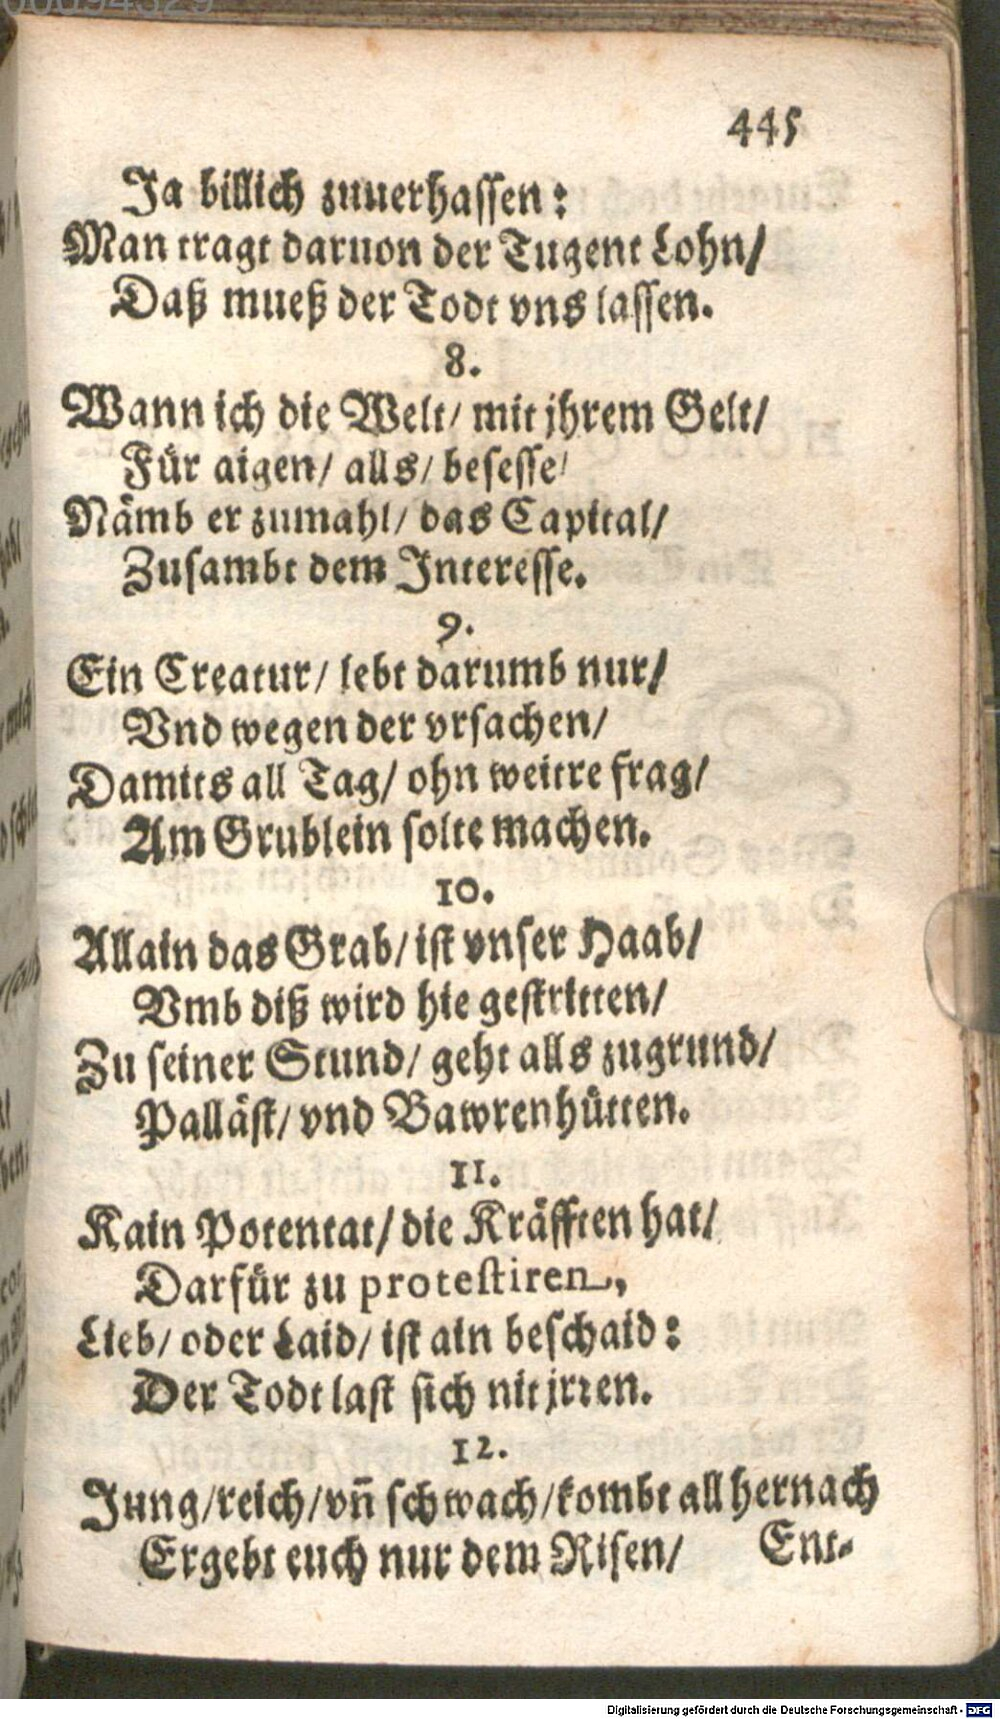 445
Ja billich zuuerhassen:
Man tragt daruon der Tugent Lohn/
Daß mueß der Todt vns lassen.
8.
Wann ich die Welt/ mit jhrem Gelt/
Für aigen/ alls/ besesse/
Nämb er zumahl/ das Capital/
Zusambt dem Interesse.
9.
Ein Creatur/ lebt darumb nur/
Vnd wegen der vrsachen/
Damits all Tag/ ohn weitre frag/
Am Grublein solte machen.
10.
Allain das Grab/ ist vnser Haab/
Vmb diß wird hie gestritten/
Zu seiner Stund/ geht alls zugrund/
Palläst/ vnd Bawrenhütten.
11.
Kain Potentat/ die Kräfften hat/
Darfür zu protestiren,
Lieb/ oder Laid/ ist ain beschaid:
Der Todt last sich nit jrren.
12.
Jung/reich/vn̄ schwach/kombt all hernach
Ergebt euch nur dem Risen/ Ent-
Digitalisierung gefördert durch die Deutsche Forschungsgemeinschaft - DFG